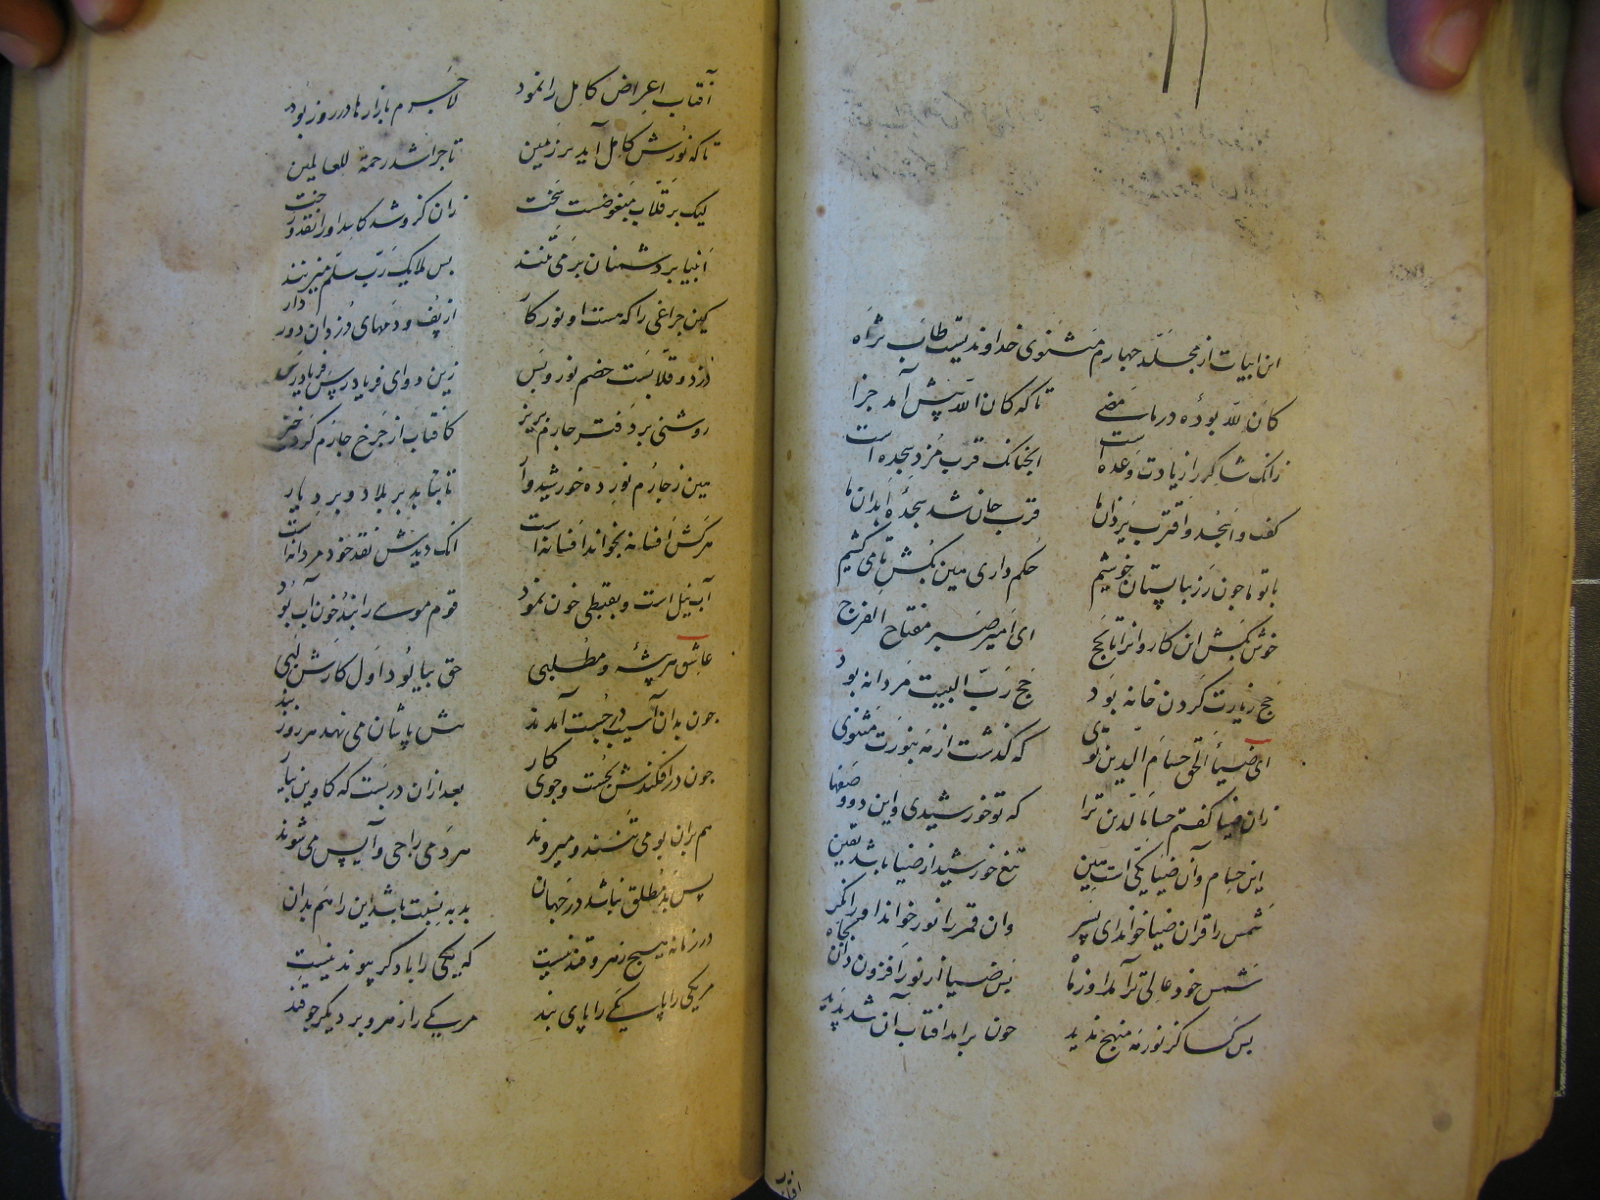 این ابیات از مجلد چهارم مثنوی خداوندیست طاب ثراه
کان لله بوده در ما مضی تا که کان الله پیش آمد جزا
زانک شاکر را زیادت وعده است آنچنانک قرب مزد سجده است
گفت واسجد واقترب یزدان ما قرب جان شد سجدهٔ ابدان ما
با تو ما چون رز بتابستان خوشیم حکم داری هین بکش تا می کشیم
خوش بکش این کاروانرا تا بحج ای امیر صبر مفتاح الفرج
حج زیارت کردن خانه بود حج رب البیت مردانه بود
ای ضیاء الحق حسام الدین توی که گذشت از مه بنورت مثنوی
زان ضیا گفتم حسام الدین ترا که تو خورشیدی و این دو وصفها
این حسام و آن ضیا یکی است هین تیغ خورشید از ضیا باشد یقین
شمس را قران ضیا خواند ای پسر وان قمر را نور خواند او را نگر
شمس خود عالی تر آمد از ماه بس ضیا از نور افزون دان بجاه
بس کسا کز نور مه منهج ندید چون برامد افتاب آن شد پدید
آفتاب اعراض کامل را نمود لاجرم بازارها در روز بود
تا که نورش کامل آید بر زمین تاجرانشد رحمة للعالمین
لیک بر قلاب مبغوضست سخت زان کزو شد کاسد او را نقد و رخت
انبیا بر دشمنان بر می تنند بس ملایک رب سلم میزنند
کین چراغی را که هست او نور کار از پف و دمهای دزدان دور دار
دزد و قلابست خصم نور و بس زین دو ای فریادرس فریاد رس
روشنی بر دفتر چارم بریز کافتاب از چرخ چارم کرد خیز
هین ز چارم نور ده خورشیدوار تا بتابد بر بلاد و بر دیار
هرکش افسانه بخواند افسانه است آنک دیدش نقد خود مردانه است
آب نیل است و بقبطی خون نمود قوم موسی را نبد خون آب بود
عاشق هر پیشه و مطلبی حق بیالود اول کارش لبی
چون بدان آسیب در جست آمدند پیش پاشان می نهد هر روز بند
چون در افکندش بجست و جوی کار بعد ازان در بست که کاوین بیار
هم بران بو می تنند و میروند هر دمی راجی و آیس می شوند
پس بد مطلق نباشد در جهان بد به نسبت باشد این را هم بدان
در زمانه هیچ زهر و قند نیست که یکی را با دگر پیوند نیست
مر یکی را پا یکی را پای بند مر یکی را زهر و بر دیگر چو قند